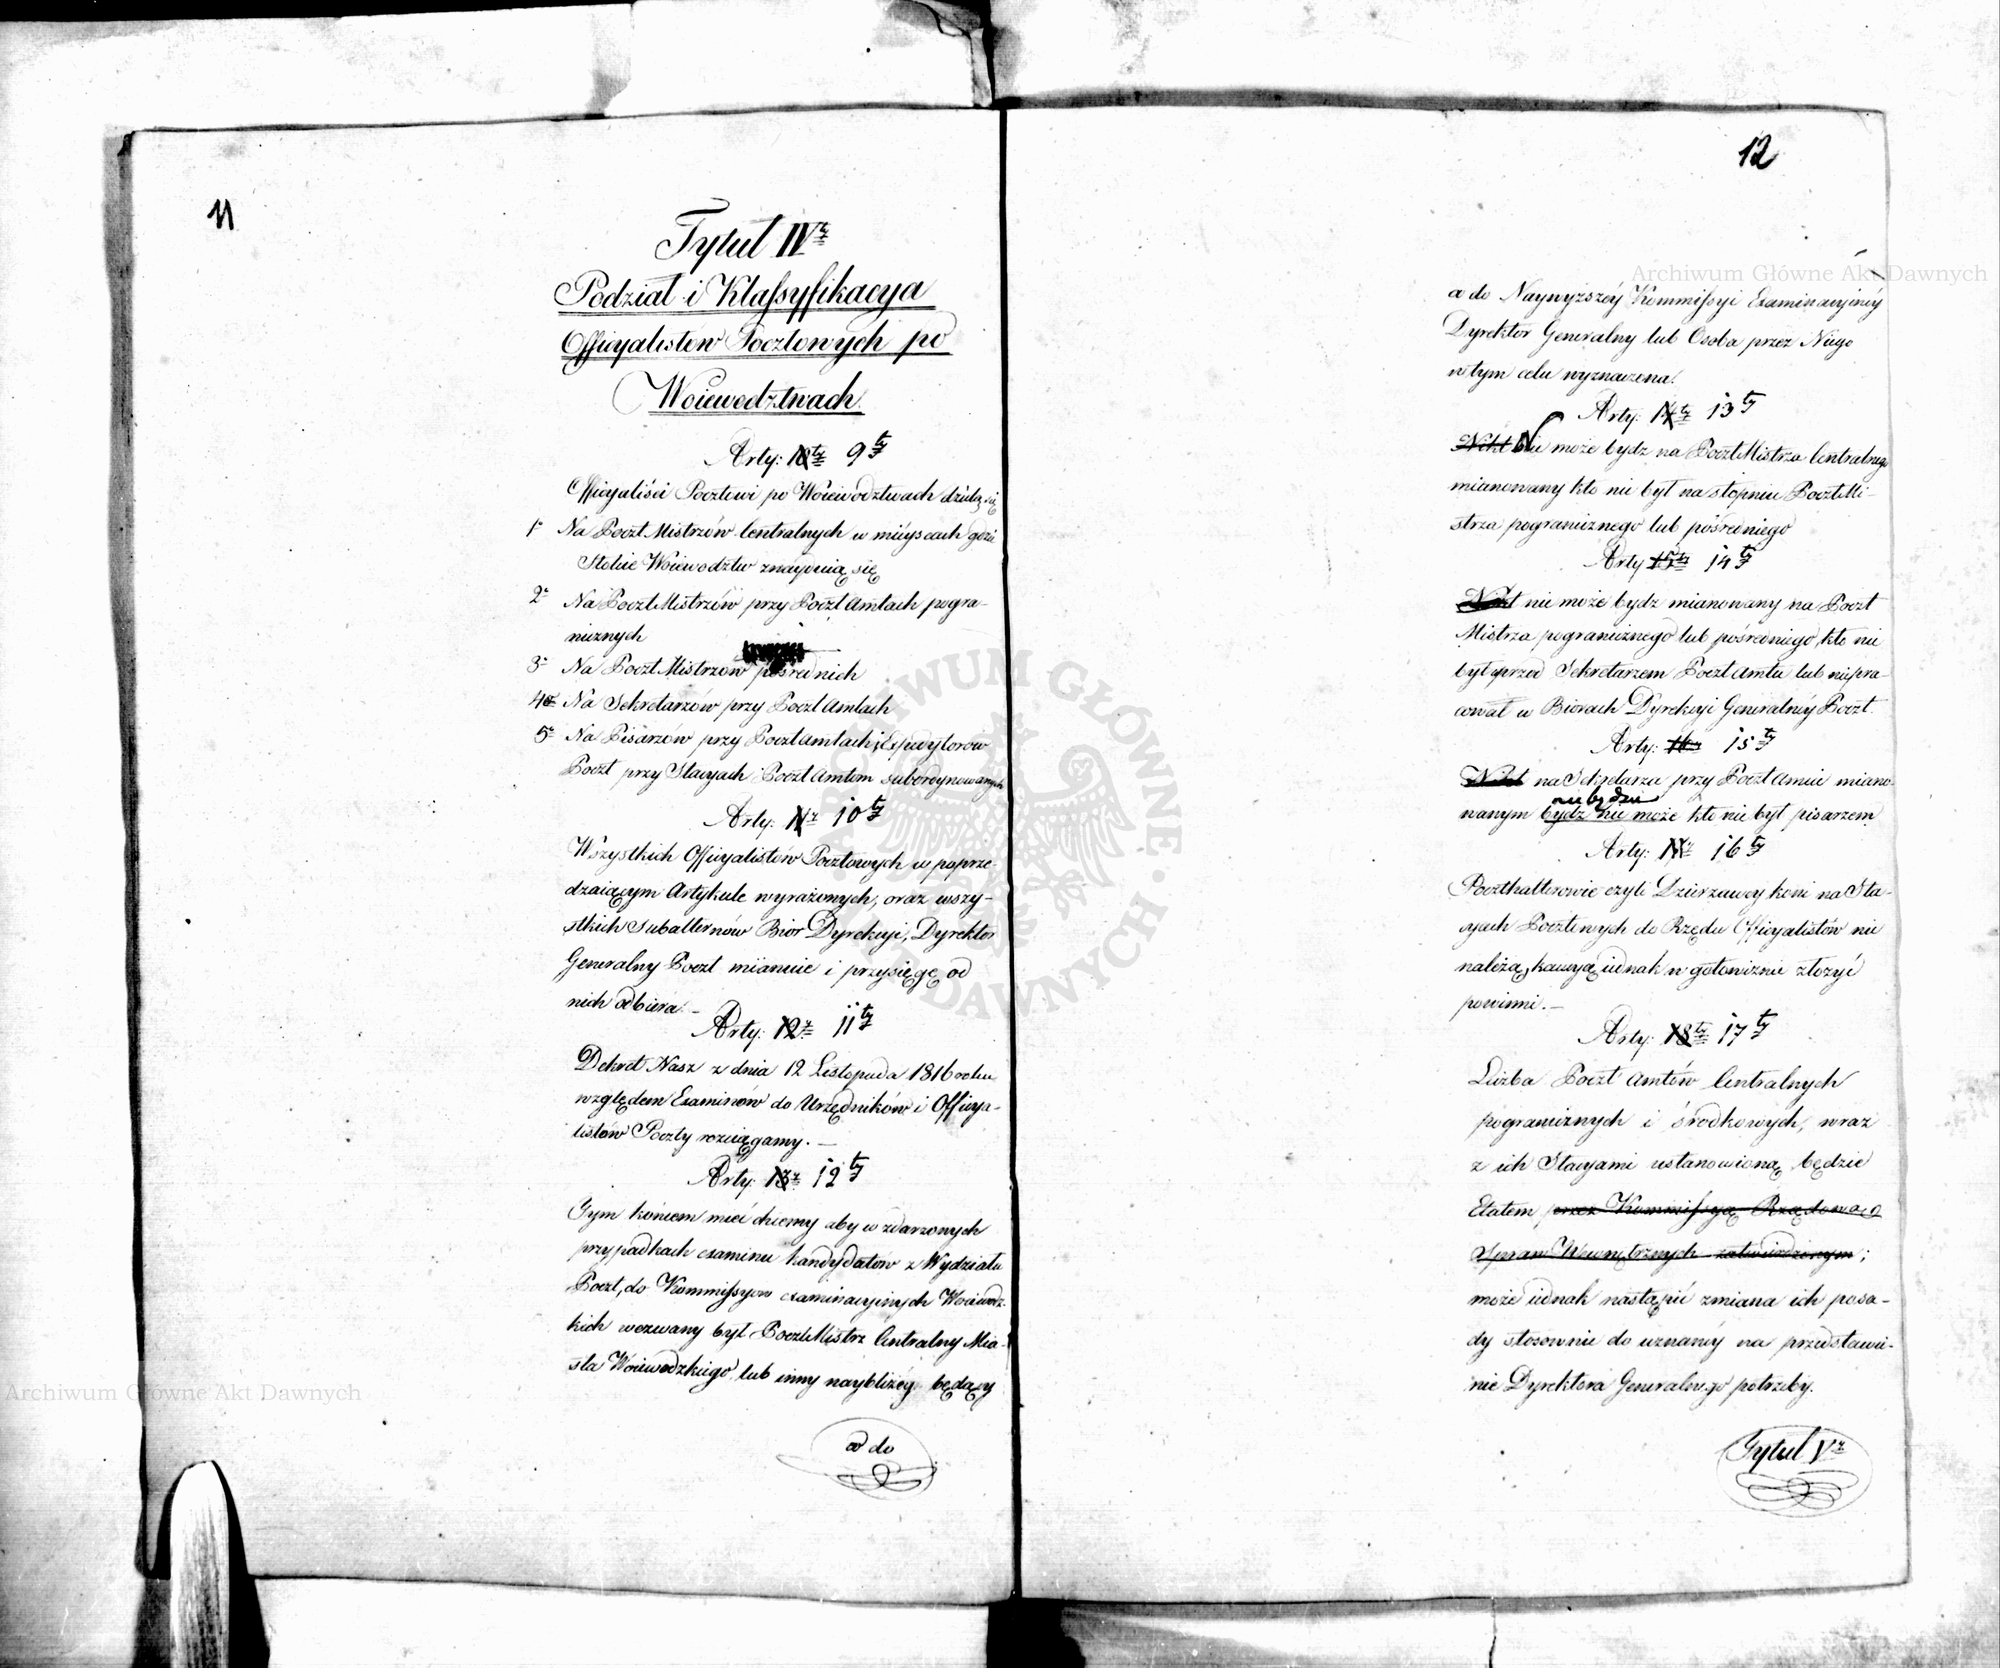 11
Tytuł IVty
Podział i Klassyfikacya
Officyalistow Pocztowych po
Woiewodztwach.
Arty: 10ty 9ty
Officyaliści Pocztowi po Woiewodztwach dzielą się
1° Na PocztMistrzów Centralnych w mieyscach gdzie
Stolice Woiewodztw znayduią się
2° Na PocztMistrzów przy PocztAmtach pogra-
nicznych
3° Na PocztMistrzów pośrednich
4° Na Sekretarzów przy PocztAmtach
5° Na Pisarzów przy PocztAmtach i Expedytorów
Poczt przy Stacyach PocztAmtom subordynowanych
Arty: 11ty 10ty
Wszystkich Officyalistów Pocztowych w poprze-
dzaiącym Artykule wyrażonych, oraz wszy-
stkich Subalternów Biór Dyrekcyi, Dyrektor
Generalny Poczt mianuie i przysięgę od
nich odbiera. –
Arty: 12ty 11ty
Dekret Nasz z dnia 12 Listopada 1816 roku
względem Examinów do Urzędników i Officya-
listów Poczty rozciągamy. –
Arty: 13ty 12ty
Tym końcem mieć chcemy aby w zdarzonych
przypadkach examinu kandydatów z Wydziału
Poczt, do Kommissyow examinacyinych Woiewodz-
kich wezwany był PocztMistrz Centralny Mia-
sta Woiewodzkiego lub inny naybliżey będący
a do
12
a do Naywyższéy Kommissyi Examinacyinéy
Dyrektor Generalny lub Osoba przez Niego
w tym celu wyznaczona.
Arty: 14ty 13ty
Nikt Nie może bydz na PocztMistrza Centralnego
mianowany kto nie był na stopniu PocztMi-
strza pogranicznego lub pośredniego
Arty 15ty 14ty
Nikt nie może bydz mianowany na Poczt
Mistrza pogranicznego lub pośredniego, kto nie
był przód Sekretarzem PocztAmtu lub nie pra-
cował w Biórach Dyrekcyi Generalnéy Poczt.
Arty: 16ty 15ty
Nikt na Sekretarza przy PocztAmcie miano-
nie będzie
wanym bydz nie może kto nie był pisarzem
Arty: 17ty 16ty
Poczthalterowie czyli Dzierzawcy koni na Sta-
cyach Pocztowych do Rzędu Officyalistów nie
należą, kaucyą iednak w gotowiznie złożyć
powinni. –
Arty: 18ty 17ty
Liczba PocztAmtów Centralnych
pogranicznych i środkowych, wraz
z ich Stacyami ustanowioną będzie
Etatem przez Kommissyą Rządową
Spraw Wewnętrznych zatwierdzonym;
może iednak nastąpić zmiana ich posa-
dy stosownie do uznanéy na przedstawie-
nie Dyrektora Generalnego potrzeby.
Tytuł Vty
Archiwum Główne Akt Dawnych
Archiwum Główne Akt Dawnych
ARCHIWUM GŁÓWNE AKT DAWNYCH